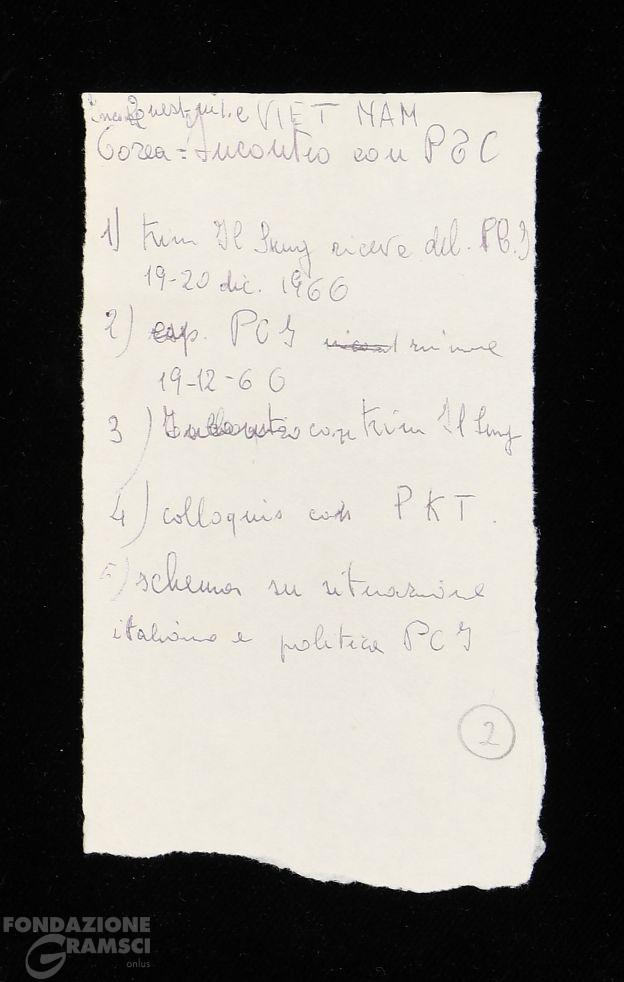 VIET NAM
Corea = Incontro con P
1) Kim Il Sung riceve del. PC.I
19-20 dic. 1966
2) esp. PCI riunione
19-12-66
3) con Kim Il Sung
4) colloquio con PKT.
5) schema su situazione
italiana e politica PCI
2
FONDAZIONE
GRAMSCI
onlus